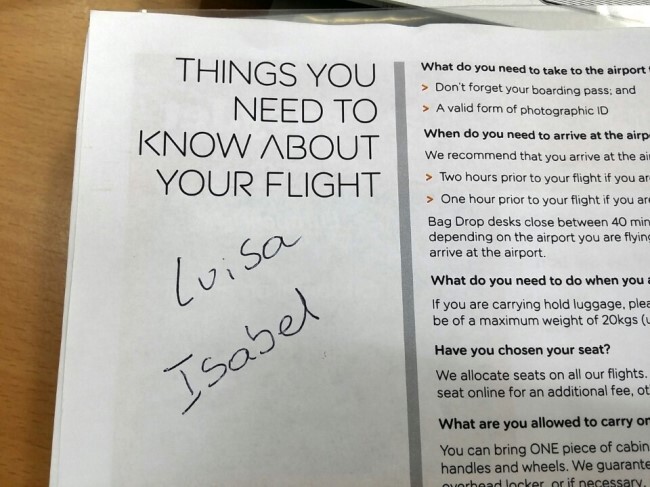 THINGS YOU
NEED TO
KNOW ABOUT
YOUR FLIGHT
Luisa
Isabel
What do you need to take to the airport
> Don't forget your boarding pass; and
> A valid form of photographic ID
When do you need to arrive at the
We recommend that you arrive at the
> Two hours prior to your flight if you
> One hour prior to your flight if you
Bag Drop desks close between 40
depending on the airport you are
arrive at the airport.
What do you need to do when you
If you are carrying hold luggage,
be of a maximum weight of 20kgs
Have you chosen your seat?
We allocate seats on all our flights.
seat online for an additional fee,
What are you allowed to carry
You can bring ONE piece of
handles and wheels. We
overhead locker, or if necessary,